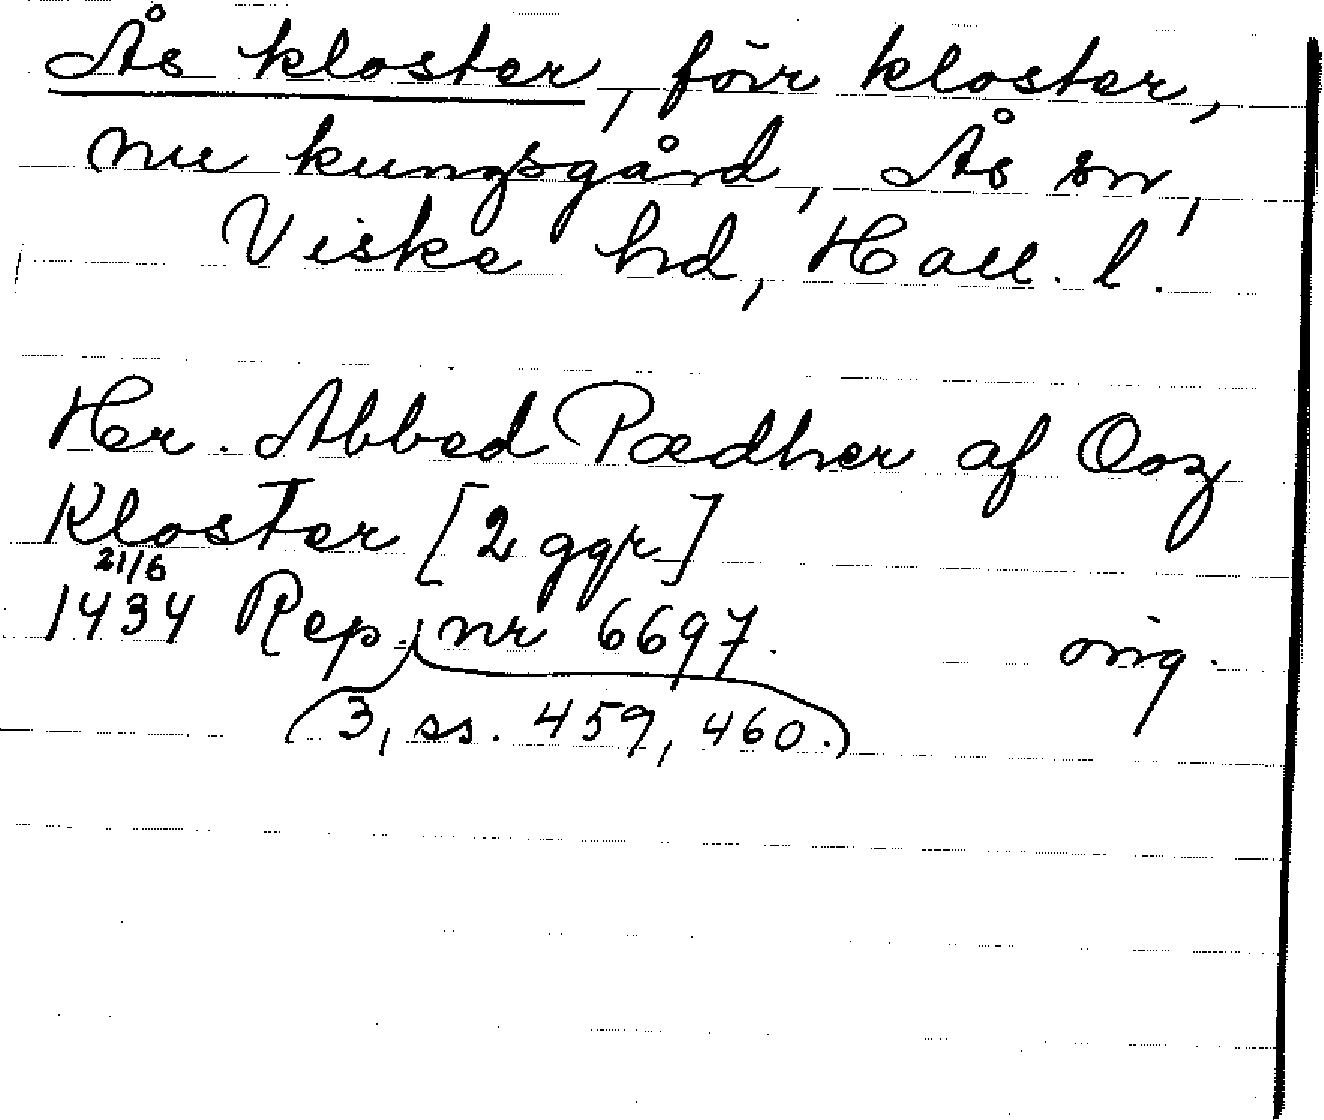 Ås kloster, förr kloster,
nu kungsgård, Ås sn,
Viske hd, Hall. l.
Her. Abbed Pædher af Ooz
Kloster [2 ggr]
21/6
1434 Rep. nr 6697. orig.
(3, ss. 459, 460.)